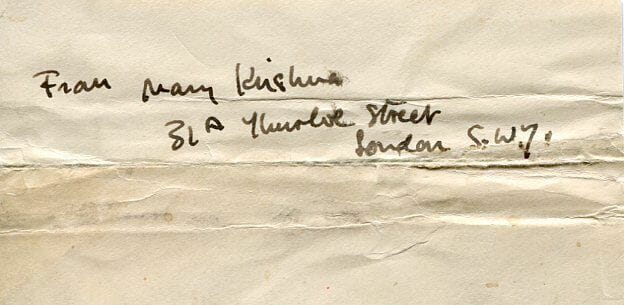 Frau Mary Krishna
31A Thurloe Street
London S.W.7.